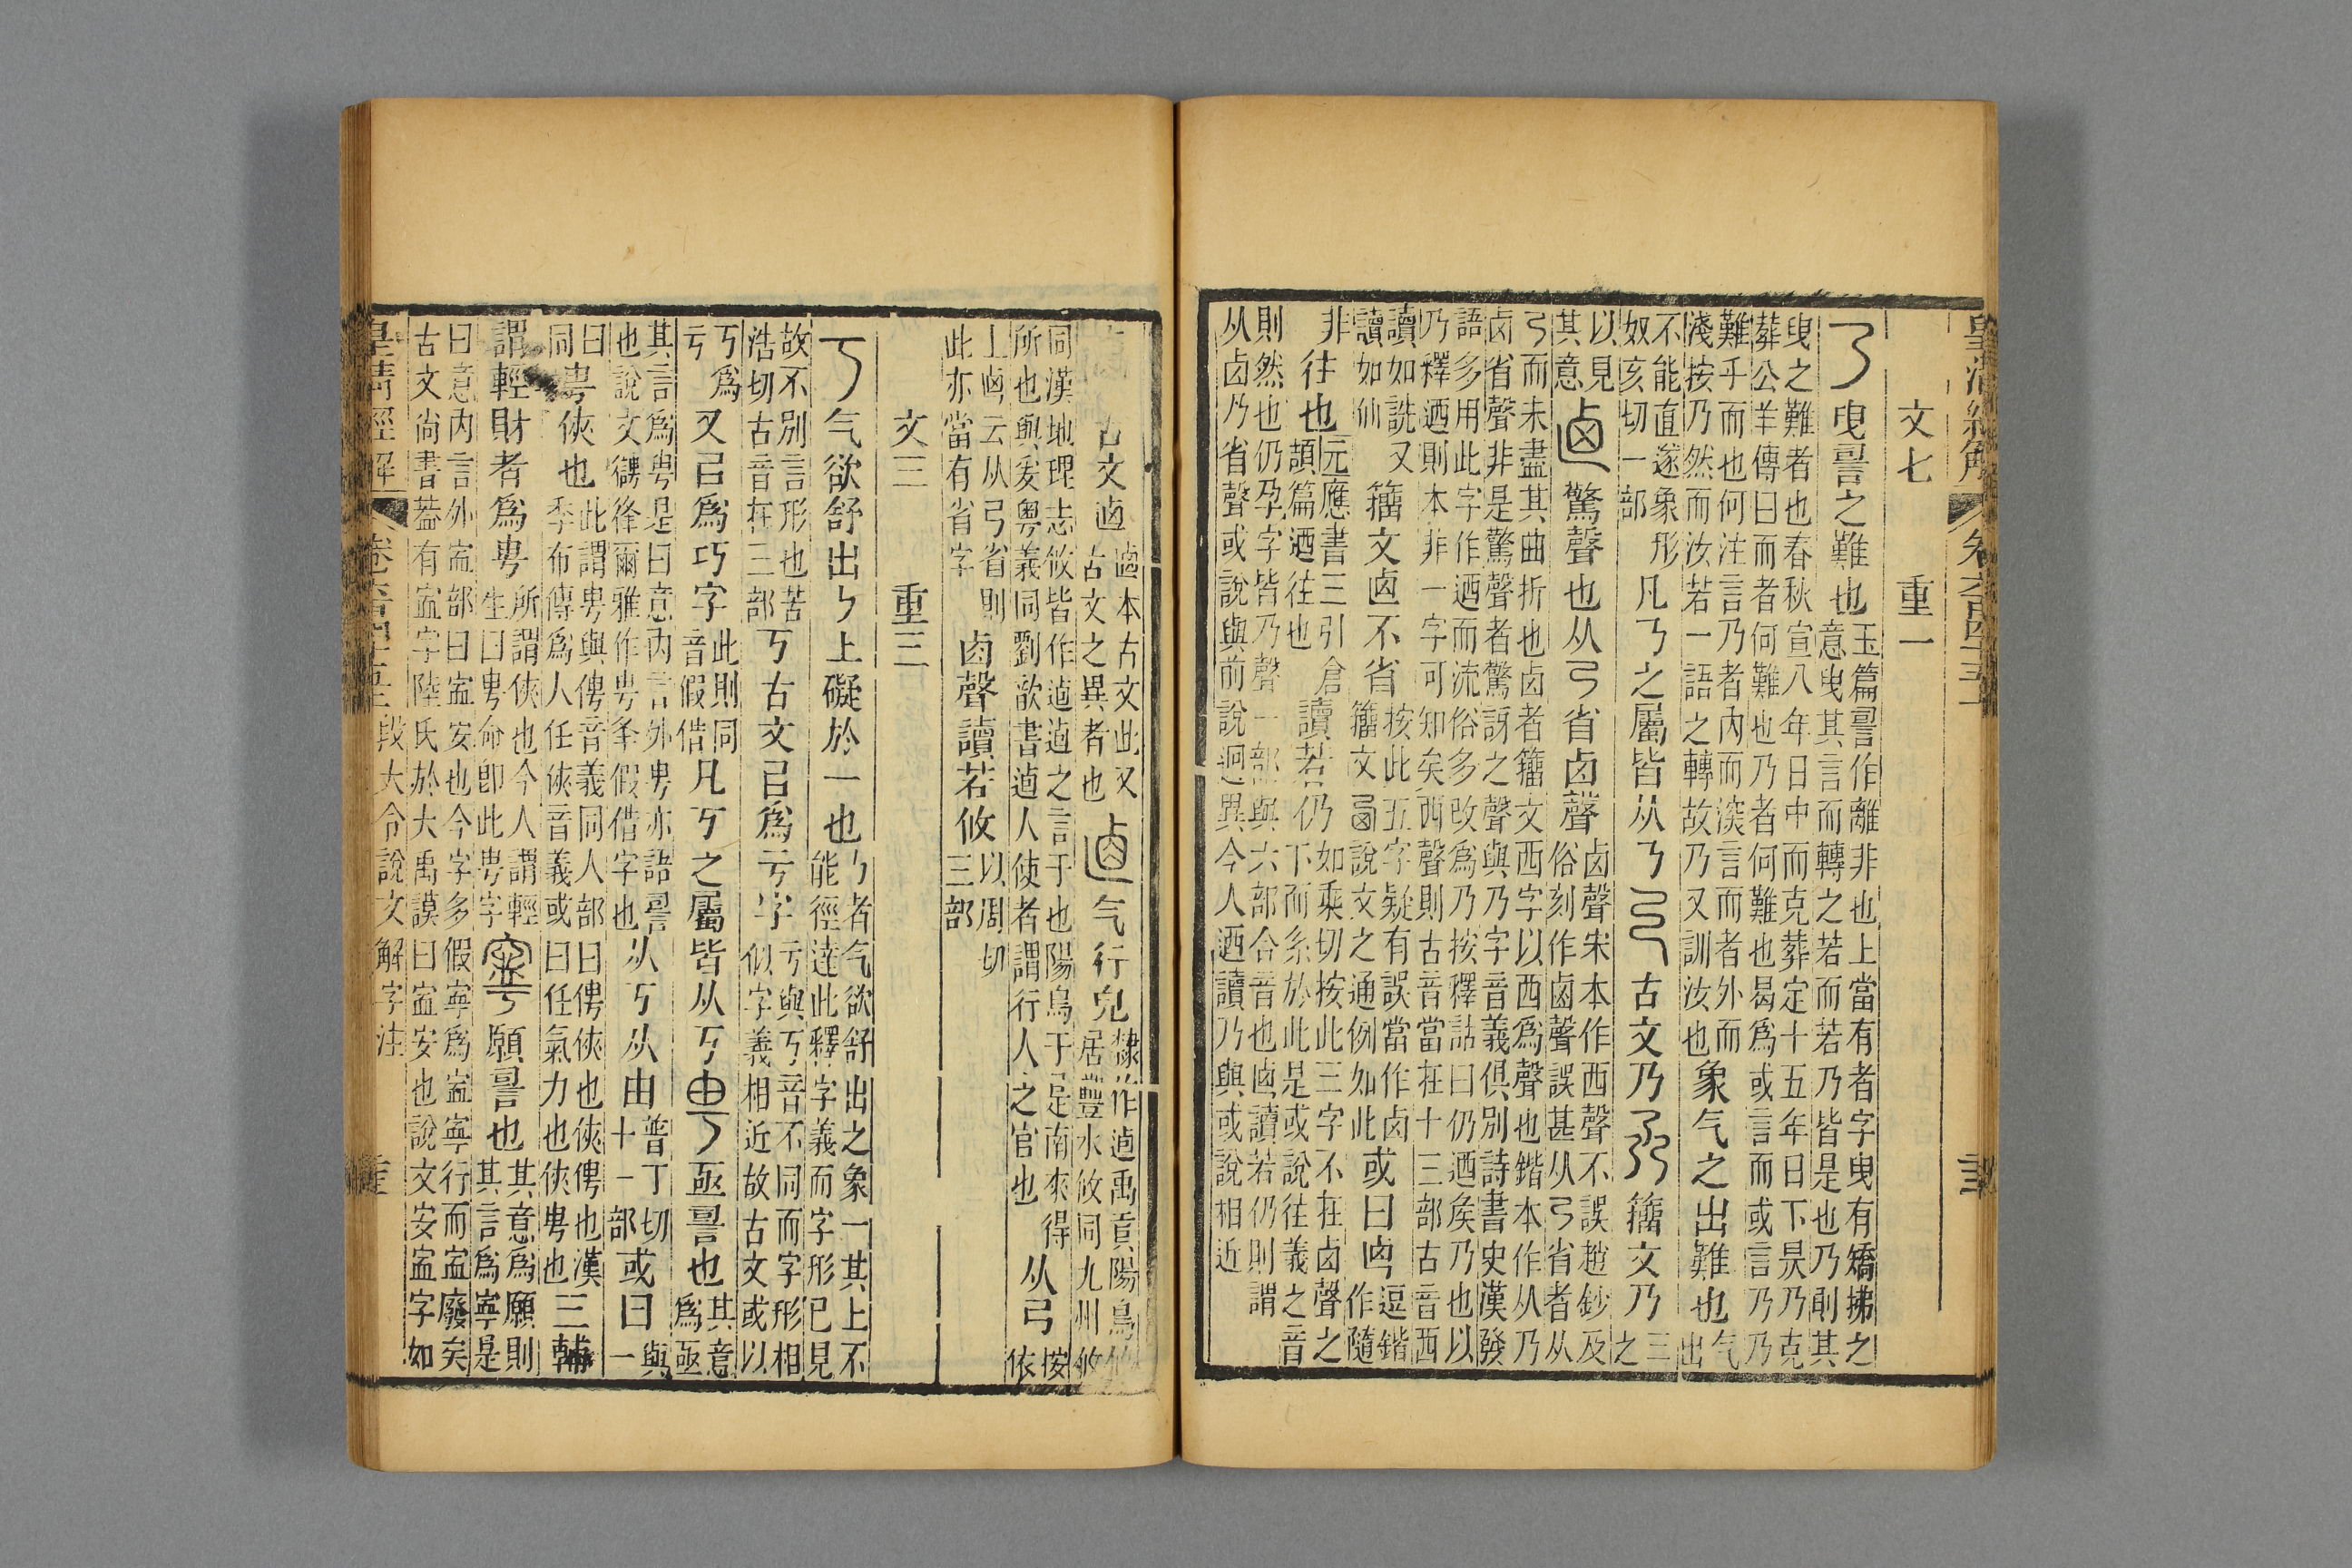 文七 重一
曳䛐之難也玉篇䛐作離非也上當有者字曳有矯拂之
意曳其言而轉之若而若乃皆是也乃則其
曳之難者也春秋宣八年日中而克葬定十五年日下昃乃克
葬公羊傳曰而者何難也乃者何難也曷爲或言而或言乃乃
難乎而也何注言乃者內而深言而者外而
淺按乃然而汝若一語之轉故乃又訓汝也象气之出難也气出
不能直遂象形
奴亥切一部
凡乃之屬皆从乃 古文乃 籒文乃三之
以見
其意
驚聲也从乃省卥聲卥聲宋本作西聲不誤趙鈔及
俗刻作鹵聲誤甚从乃省者从
乃而未盡其曲折也卥者籒文西字以西爲聲也鍇本作从乃
卥省聲非是驚聲者驚訝之聲與乃字音義俱別詩書史漢發
語多用此字作迺而流俗多改爲乃按釋詁曰仍迺矦乃也以
乃釋迺則本非一字可知矣西聲則古音當在十三部古音西
讀如詵又
讀如仙
籒文卥不省按此五字疑有誤當作卥
籒文西說文之通例如此或曰逗鍇
作隨
非
往也元應書三引倉
頡篇迺往也
讀若仍如乘切按此三字不在卥聲之
下而系於此是或說往義之音
則然也仍孕字皆乃聲一部與六部合音也讀若仍則謂
从卥乃省聲或說與前說迥異今人迺讀乃與或說相近
古文𠧟本古文此又
古文之異者也
气行皃隸作逌禹貢陽鳥攸
居豐水攸同九州攸
同漢地理志攸皆作逌逌之言于也陽鳥于是南來得
所也與爰粤義同劉歆書逌人使者謂行人之官也从乃按
依
上云从乃省則
此亦當有省字
卥聲讀若攸以周切
三部
文三 重三
丂气欲舒出㇉上礙於一也㇉者气欲舒出之象一其上不
能徑達此釋字義而字形已見
故不別言形也苦
浩切古音在三部
丂古文㠯爲亏字亏與丂音不同而字形相
似字義相近故古文或以
丂爲
亏
又㠯爲巧字此則同
音假借
凡丂之屬皆从丂
甹亟䛐也其意
爲亟
其言爲甹是曰意內言外甹亦語䛐
也說文德徸爾雅作甹夆假借字也
从丂从由普丁切
十一部
或曰與一
曰甹
同
俠也此謂甹與俜音義同人部曰俜俠也俠俜也漢
季布傳爲人任俠音義或曰任氣力也俠甹也三輔
謂輕財者爲甹所謂俠也今人謂輕
生曰甹命卽此甹字
寧願䛐也其意爲願則
其言爲寧是
曰意內言外寍部曰寍安也今字多假寧爲寍寧行而寍廢矣
古文尙書葢有寍字陸氏於大禹謨曰寍安也說文安寍字如
皇清經解 卷六百四十五 段大令說文解字注